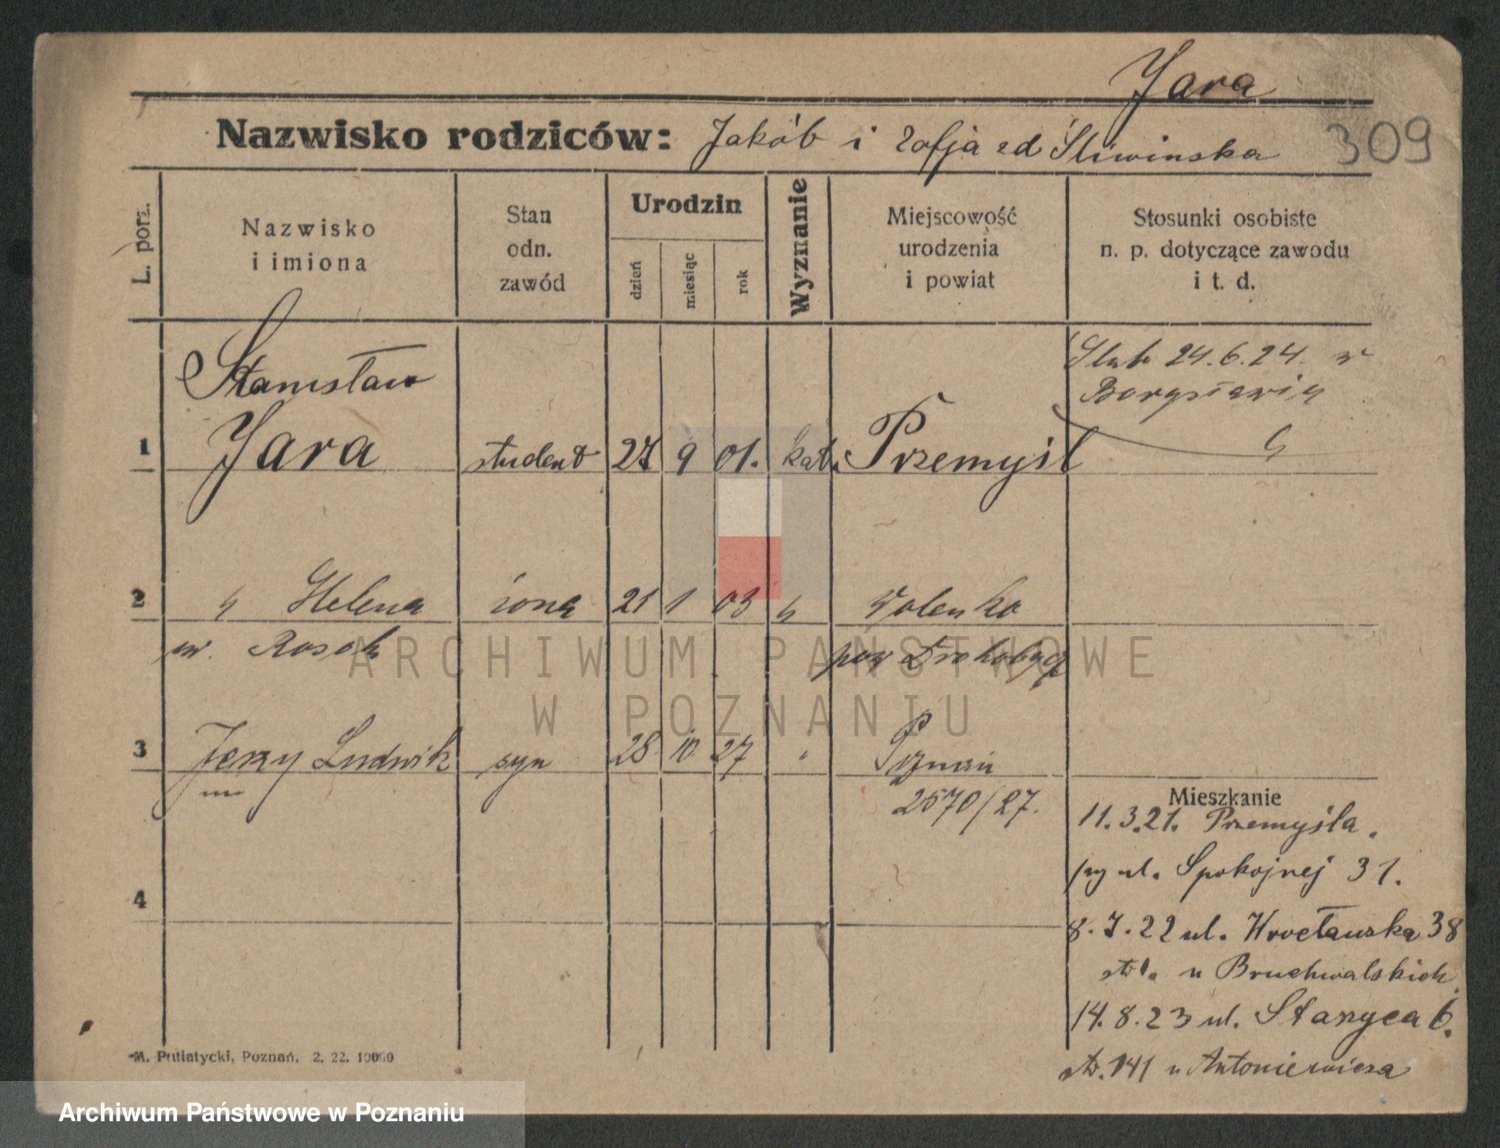 Jara
Nazwisko rodziców: Jakób i Zofja zd Śliwinska 309
L. porz.
Nazwisko
i imiona
Stan
odn.
zawód
Urodzin
dzień
miesiąc
rok
Wyznanie
Miejscowość
urodzenia
i powiat
Stosunki osobiste
n. p. dotyczące zawodu
i t. d.
Ślub 24.6.24. w
Borysławiu
1 Stanisław
Jara student 27 9 01. kat. Przemyśl
2 " Helena żona 21 1 03 " Wolanka
ur. Rosok pow Drohobycz
3 Jerzy Ludwik syn 28 10 27 " Poznań
2570/27.
4
Mieszkanie
11.3.21. Przemyśla.
przy ul. Spokojnej 31.
8.7.22 ul. Wrocławska 38
u Bruchwalskich
14.8.23 ul. Staszyca 6.
141 u Antoniewicza
M. Putiatycki, Poznań. 2. 22. 10000
ARCHIWUM PAŃSTWOWE
W POZNANIU
Archiwum Państwowe w Poznaniu